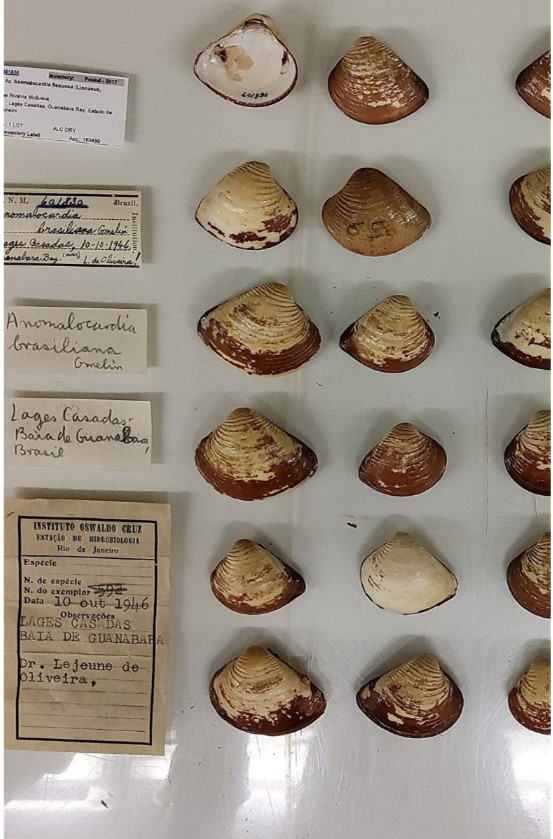 Inventory: Found - 2017
As: Anomalocardia flexuosa (Linnaeus,
Bivalvia Mollusca
Lages Casadas, Guanabara Bay, Estado de
1 LOT ALC DRY
Inventory Label Acc.: 163490
N. M. 601830 Brazil.
nomalocardia
brasiliana Gmelin
ages Casadas, 10-10-1946
anabara Bay. L. de Oliveira!
Anomalocardia
brasiliana
Gmelin
Lages Casadas-
Baia de Guanabara,
Brasil
INSTITUTO OSWALDO CRUZ
ESTAÇÃO DE HIDROBIOLOGIA
Rio de Janeiro
Espécie
N. de espécie
N. do exemplar 592
Data 10 out 1946
Observações
LAGES CASADAS
BAIA DE GUANABARA
Dr. Lejeune de
Oliveira,
601830